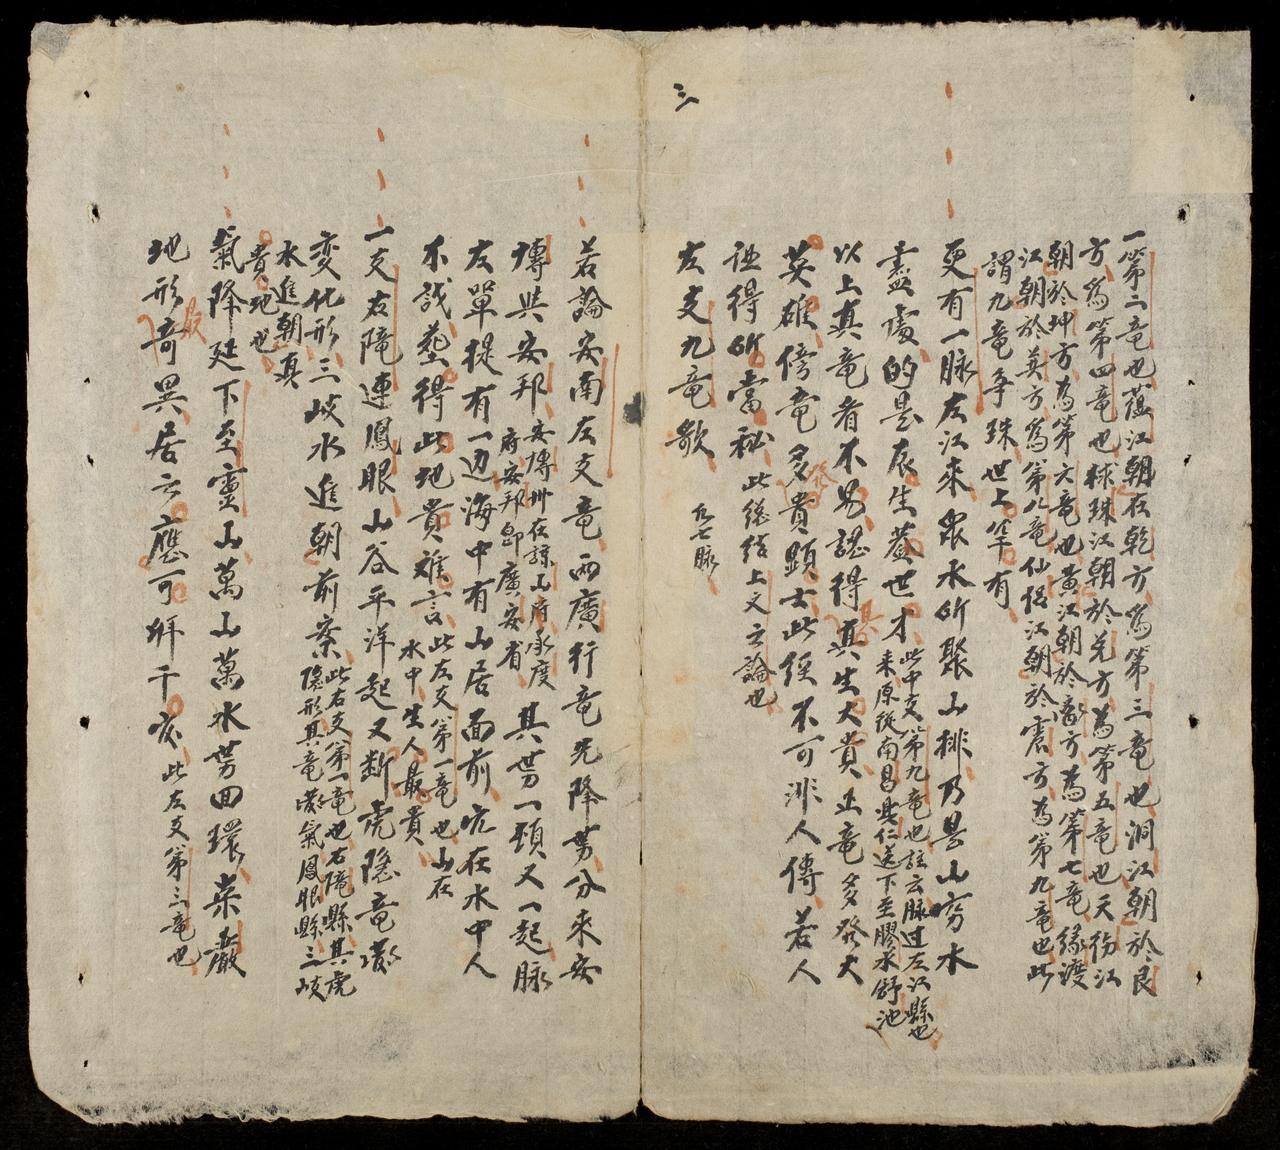 三
一第二竜也蕴江朝在乾方為第三竜也洞江朝於艮
方為第四竜也球珠江朝於兑方為第五竜也天 江
朝於坤方為第六竜也黄江朝於 方為第七竜緣渡
江朝於巽方為第八竜仙侣江朝於震方為第九竜也此
謂九竜争珠世上罕有
更有一脉左江來衆水所聚山排乃是山窮水
盡處的是辰生盖世才此中支第九竜也註云脉过左江縣也
來原孫南昌 仁送下至膠水舒池
以上真竜者不易認得真生大貴正竜多發大
英雄傍竜多貴顯士此經不可非人傳若人
誰得所當秘此總結上文之論也
左支九竜歌 凡七脉
若論安南左支竜兩廣行竜先降势分來安
博與安邦安博州在諒山府永度
府安邦即廣安省其势一頓又一起脉
左單提有一边海中有山居面前 在水中人
不識塟得此地貴难言此左支第一竜也山在
水中生人最貴
一支右障連鳳眼山谷平洋起又断虎隐竜蔵
变化形三岐水進朝前案此右支第一竜也右障縣其虎
隐形其竜蔵氣鳳眼縣三岐
水進朝真
貴地也
氣降延下至靈山萬山萬水势回環來嚴
地形奇異居之應可所千 此左支第三竜也